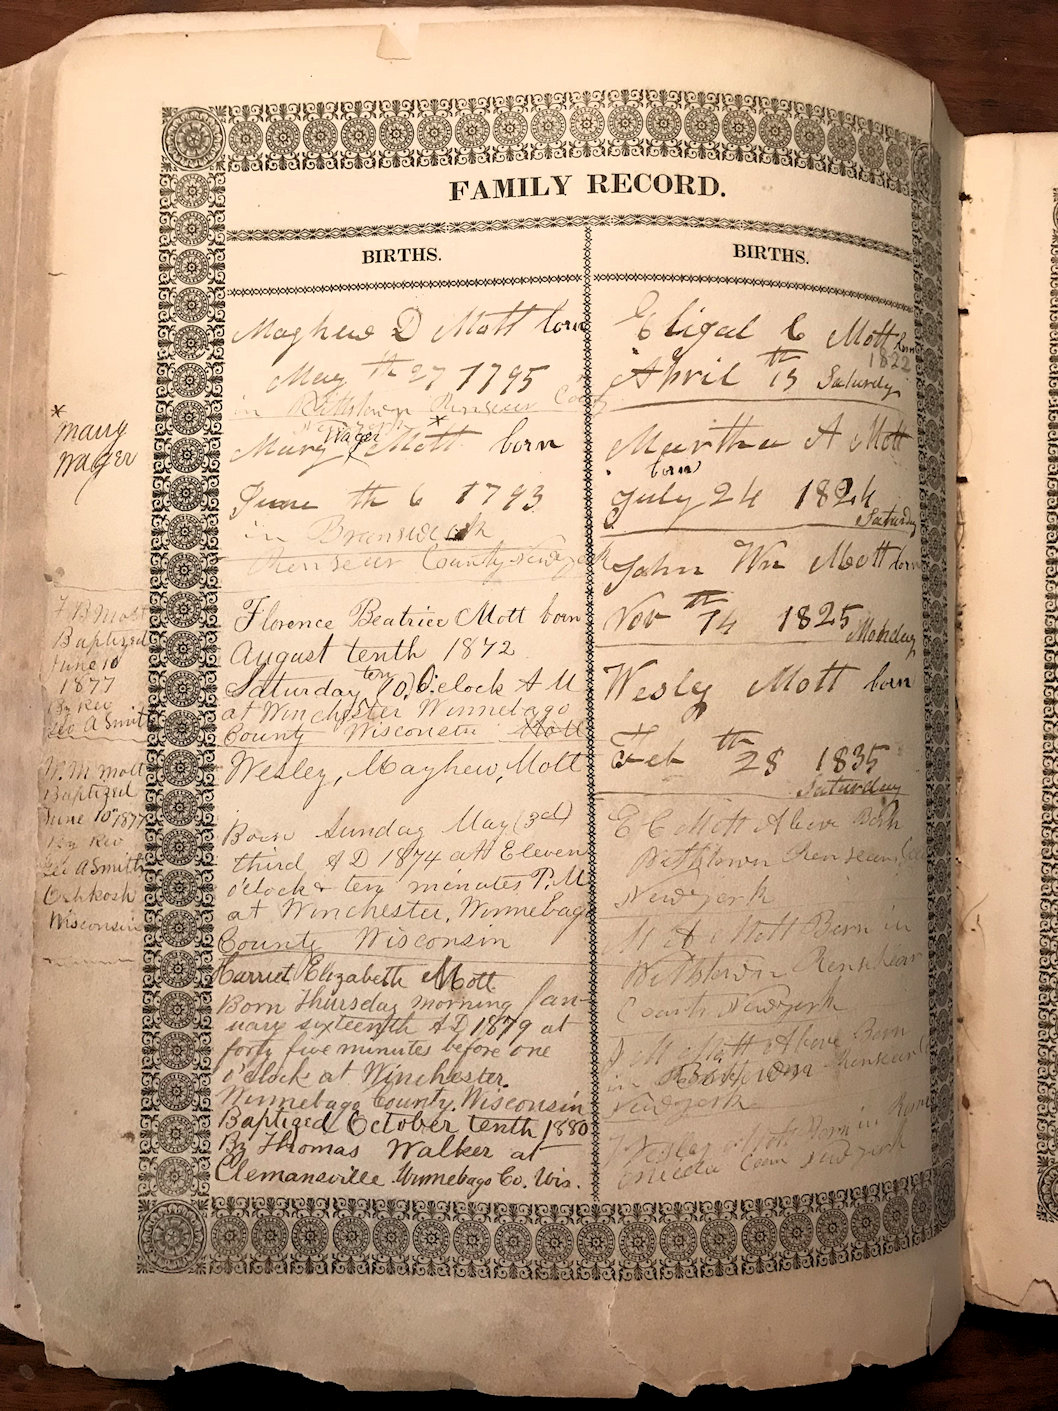 FAMILY RECORD.
BIRTHS.
Mayhew D Mott born
May th 27 1795
in Pittstown Renseur Co
Mary Wager Mott * born
June th 6 1793
in Brunswick
Renseur County New york
Florence Beatrice Mott born
August tenth 1872
Saturday ten (10) O'clock A M
at Winchester Winnebago
County Wisconsin Mott
Wesley, Mayhew, Mott
Born Sunday May (3rd)
third A D 1874 at Eleven
o'clock & ten minutes P. M
at Winchester, Winnebago
County Wisconsin
Harriet Elizabeth Mott
Born Thursday morning Jan-
uary sixteenth A D 1879 at
forty five minutes before one
o'clock at Winchester.
Winnebago County. Wisconsin
Baptized October tenth 1880
By Thomas Walker at
Clemansville Winnebago Co. Wis.
BIRTHS.
Eligal C Mott Born
1822
April th 13 Saturdy
Martha A Mott
born
July 24 1824
Saturday
John Wm Mott born
Nov th 14 1825 Monday
Wesly Mott born
Feb th 28 1835
Saturday
E C Mott Above Born
Pittstown Renseur
New york
M A Mott Born in
Pittstown Renselear
County New york
J W Mott Above Born
in Renseur
New york
Wesley Mott Born in Rome
Oneida Coun New york
*
mary
wager
F B Mott
Baptized
June 10
1877
By Rev
Geo A Smith
W. M Mott
Baptized
June 10th 1877
By Rev
Geo A Smith
Oshkosh
Wisconsin